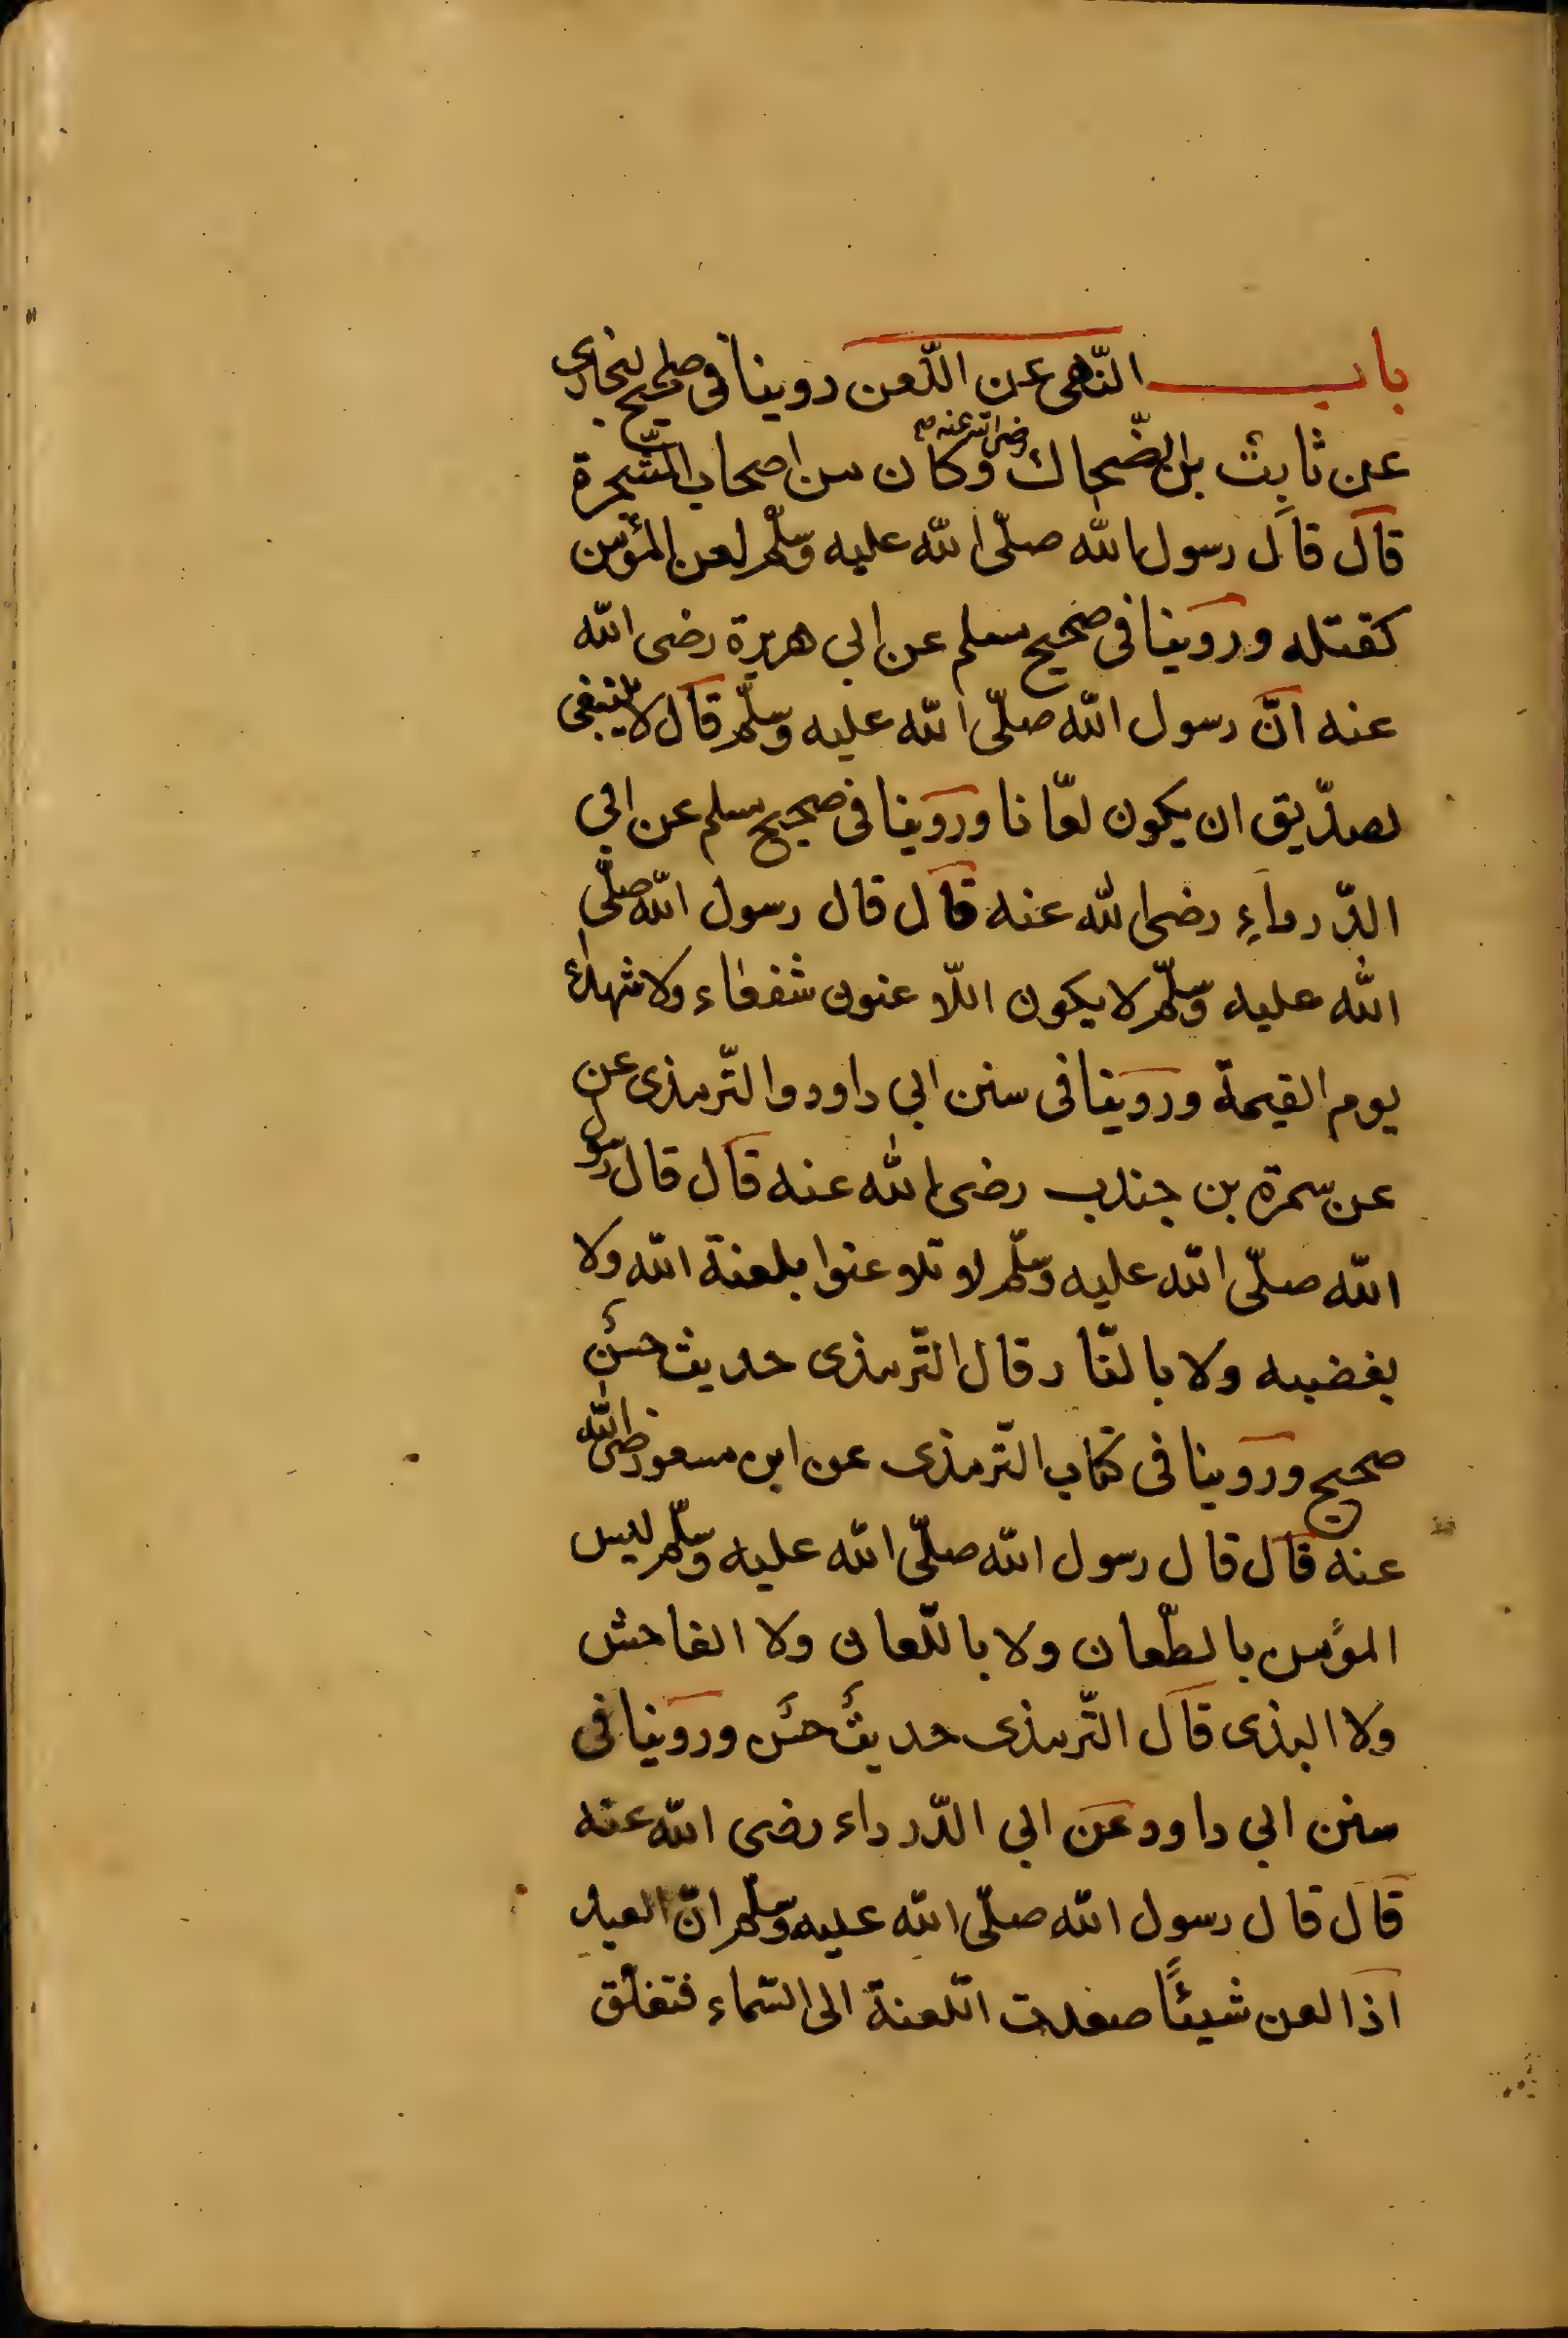 باب النّهى عن اللّعن روينا فى صحيح البخارى
عن ثابت بن الضّحاك رضى الله عنه وكان من اصحاب الشّجرة
قال قال رسول الله صلّى الله عليه وسلّم لعن المؤمن
كقتله وروينا فى صحيح مسلم عن ابى هريرة رضى الله
عنه انّ رسول الله صلّى الله عليه وسلّم قال لا ينبغى
لصدّيق ان يكون لعّانا وروينا فى صحيح مسلم عن ابى
الدّرداء رضى الله عنه قال قال رسول الله صلّى
الله عليه وسلّم لا يكون اللّاعنون شفعاء ولا شهداء
يوم القيمة وروينا فى سنن ابى داود والتّرمذى عن
عن سمرة بن جندب رضى الله عنه قال قال رسول
الله صلّى الله عليه وسلّم لا تلاعنوا بلعنة الله ولا
بغضبه ولا بالنّار قال التّرمذى حديث حسن
صحيح وروينا فى كتاب التّرمذى عن ابن مسعود رضى الله
عنه قال قال رسول الله صلّى الله عليه وسلّم ليس
المؤمن بالطّعان ولا باللّعان ولا الفاحش
ولا البذى قال التّرمذى حديث حسن وروينا فى
سنن ابى داود عن ابى الدّرداء رضى الله عنه
قال قال رسول الله صلّى الله عليه وسلّم انّ العبد
اذا لعن شيئًا صعدت اللّعنة الى السّماء فتغلق